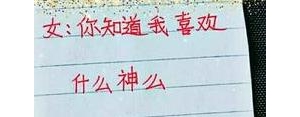 女:你知道我喜欢
什么神么